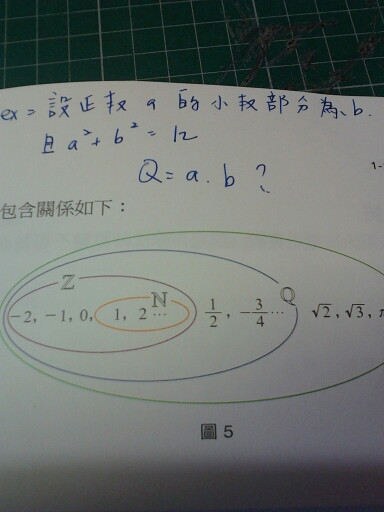 ex = 設正數 a 的小數部分為 b.
且 a² + b² = 12
Q = a . b ?
1-
包含關係如下：
Z N Q
-2, -1, 0, 1, 2 ⋯ 1/2, -3/4 ⋯ √2, √3, π
圖 5